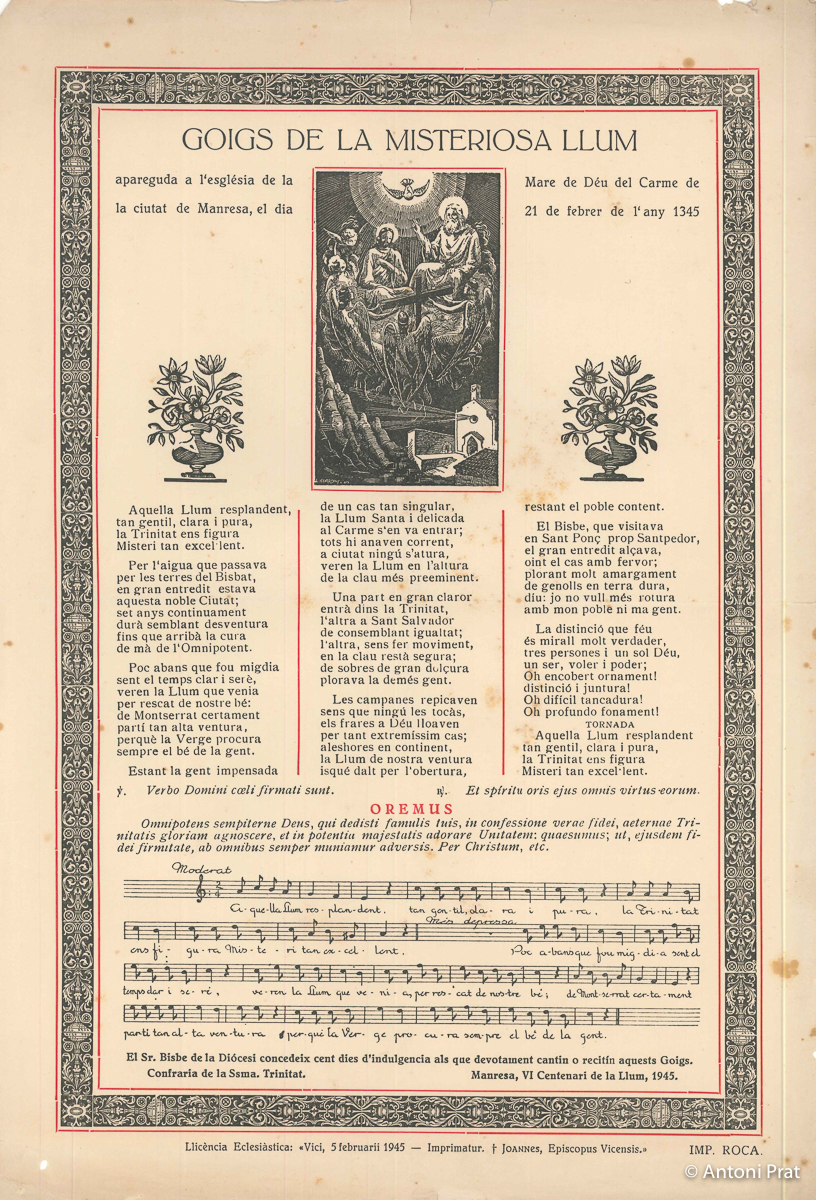 GOIGS DE LA MISTERIOSA LLUM
apareguda a l'església de la Mare de Déu del Carme de
la ciutat de Manresa, el dia 21 de febrer de l'any 1345
Aquella Llum resplandent,
tan gentil, clara i pura,
la Trinitat ens figura
Misteri tan excel·lent.
Per l'aigua que passava
per les terres del Bisbat,
en gran entredit estava
aquesta noble Ciutat;
set anys continuament
durà semblant desventura
fins que arribà la cura
de mà de l'Omnipotent.
Poc abans que fou migdia
sent el temps clar i serè,
veren la Llum que venia
per rescat de nostre bé:
de Montserrat certament
partí tan alta ventura,
perquè la Verge procura
sempre el bé de la gent.
Estant la gent impensada
de un cas tan singular,
la Llum Santa i delicada
al Carme s'en va entrar;
tots hi anaven corrent,
a ciutat ningú s'atura,
veren la Llum en l'altura
de la clau més preeminent.
Una part en gran claror
entrà dins la Trinitat,
l'altra a Sant Salvador
de consemblant igualtat;
l'altra, sens fer moviment,
en la clau restà segura;
de sobres de gran dolçura
plorava la demés gent.
Les campanes repicaven
sens que ningú les tocàs,
els frares a Déu lloaven
per tant extremíssim cas;
aleshores en continent,
la Llum de nostra ventura
isqué dalt per l'obertura,
restant el poble content.
El Bisbe, que visitava
en Sant Ponç prop Santpedor,
el gran entredit alçava,
oint el cas amb fervor;
plorant molt amargament
de genolls en terra dura,
diu: jo no vull més rotura
amb mon poble ni ma gent.
La distinció que féu
és mirall molt verdader,
tres persones i un sol Déu,
un ser, voler i poder;
Oh encobert ornament!
distinció i juntura!
Oh difícil tancadura!
Oh profundo fonament!
TORNADA
Aquella Llum resplandent
tan gentil, clara i pura,
la Trinitat ens figura
Misteri tan excel·lent.
℣. Verbo Domini cœli firmati sunt. ℟. Et spíritu oris ejus omnis virtus eorum.
OREMUS
Omnipotens sempiterne Deus, qui dedisti famulis tuis, in confessione verae fidei, aeternae Tri-
nitatis gloriam agnoscere, et in potentia majestatis adorare Unitatem: quaesumus; ut, ejusdem fi-
dei firmitate, ab omnibus semper muniamur adversis. Per Christum, etc.
Moderat
A-que-lla Llum res-plan-dent, tan gen-til, cla-ra i pu-ra, la Tri-ni-tat
Més depressa
ens fi-gu-ra Mis-te-ri tan ex-cel-lent. Poc a-bans que fou mig-di-a sent el
temps clar i se-rè, ve-ren la Llum que ve-ni-a, per res-cat de nostre bé; de Mont-se-rrat cer-ta-ment
partí tan al-ta ven-tu-ra perquè la Ver-ge pro-cu-ra sem-pre el bé de la gent.
El Sr. Bisbe de la Diócesi concedeix cent dies d'indulgencia als que devotament cantin o recitin aquests Goigs.
Confraria de la Ssma. Trinitat. Manresa, VI Centenari de la Llum, 1945.
Llicència Eclesiàstica: «Vici, 5 februarii 1945 — Imprimatur. † JOANNES, Episcopus Vicensis.»
IMP. ROCA.
© Antoni Prat